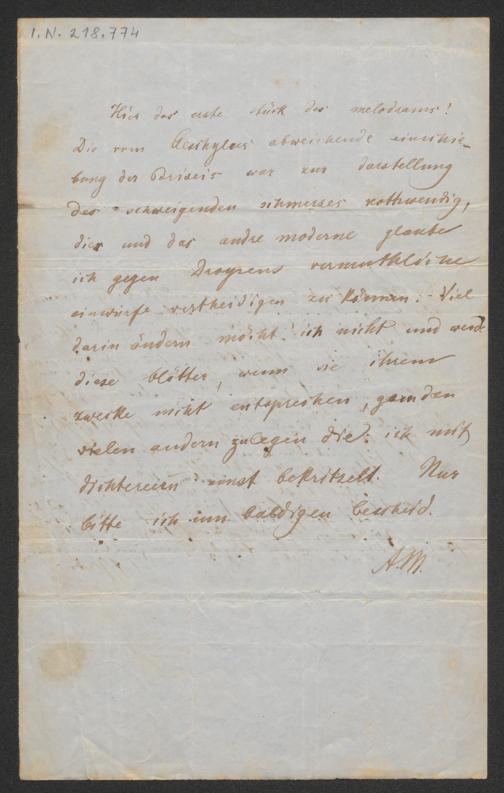 I.N. 218.774
Hier das erste stück des melodrams!
Die vom Aeschylos abweichende einschie-
bung der Briseis war zur darstellung
des schweigenden schmerzes nothwendig,
dies und das andre moderne glaube
ich gegen Droysens vermuthliche
einwürfe vertheidigen zu können. Viel
darin ändern möcht' ich nicht und werde
diese blätter, wenn sie ihrem
zwecke nicht entsprechen, zu den
vielen andern zulegen die ich mit
dichtereien einst bekritzelt. Nur
bitte ich um baldigen bescheid.
A.M.